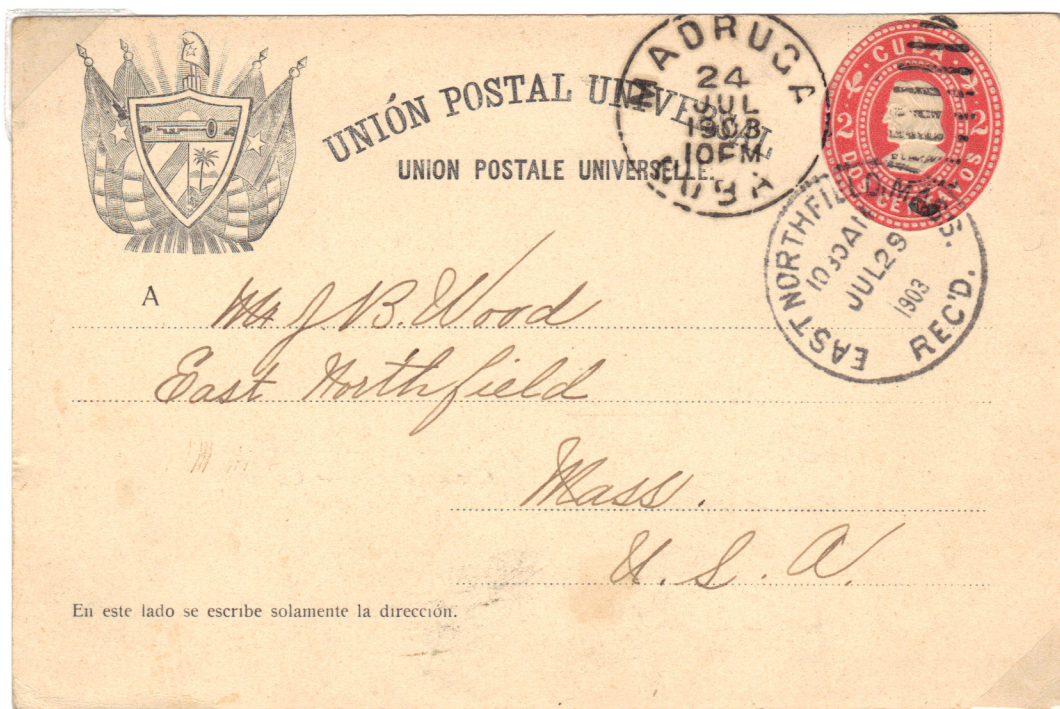 UNIÓN POSTAL UNIVERSAL
UNION POSTALE UNIVERSELLE.
MADRUGA
24
JUL
1903
10 PM
CUBA
CUBA
2 2
DOS CENTAVOS
EAST NORTHFIELD, MASS.
10 30 AM
JUL 29
1903
REC'D.
A
J. B. Wood
East Northfield
Mass.
U. S. A.
En este lado se escribe solamente la dirección.